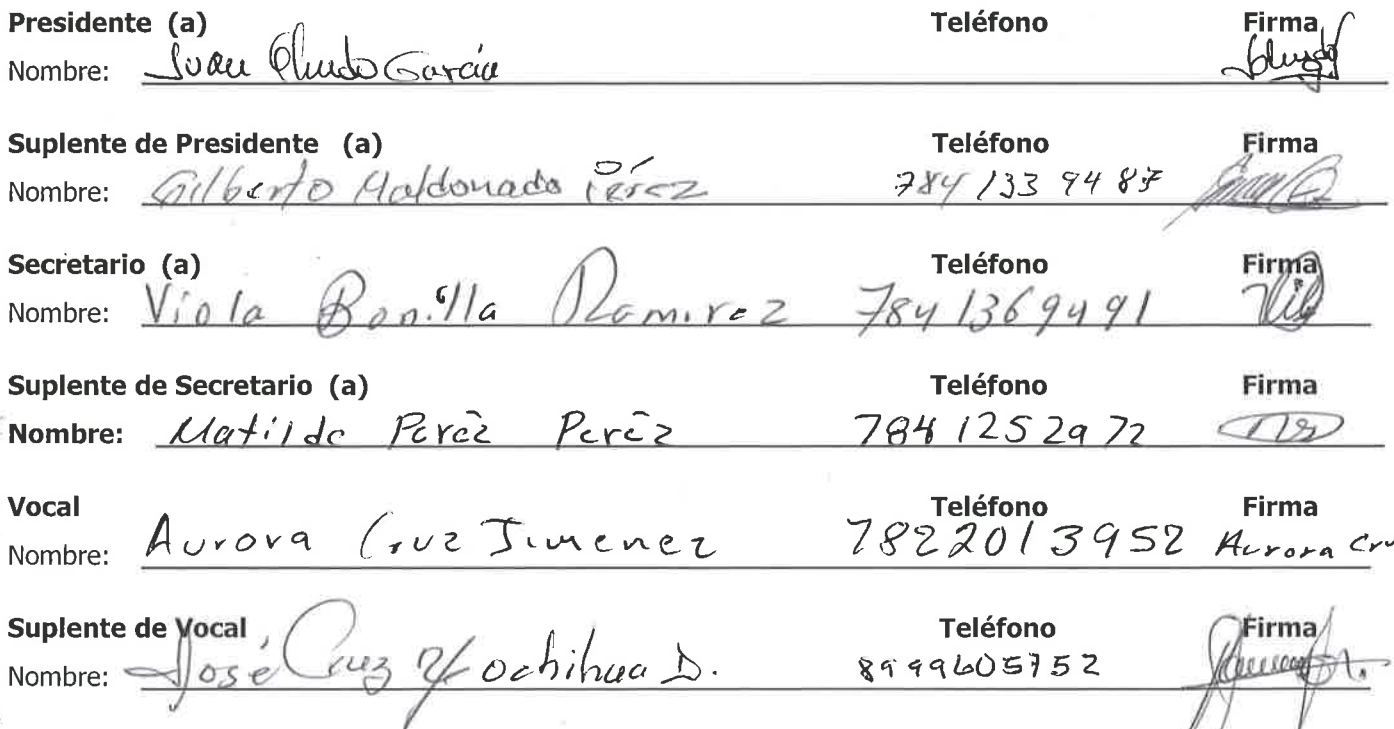 Presidente (a) Teléfono Firma
Nombre: Juan Olmedo Garcia
Suplente de Presidente (a) Teléfono Firma
Nombre: Gilberto Maldonado Pérez 784 133 9487
Secretario (a) Teléfono Firma
Nombre: Viola Bonilla Ramirez 7841369491
Suplente de Secretario (a) Teléfono Firma
Nombre: Matilde Peréz Peréz 784 125 2972
Vocal Teléfono Firma
Nombre: Aurora Cruz Jimenez 7822013952 Aurora Cru
Suplente de Vocal Teléfono Firma
Nombre: José Cruz Xochihua D. 8999605752